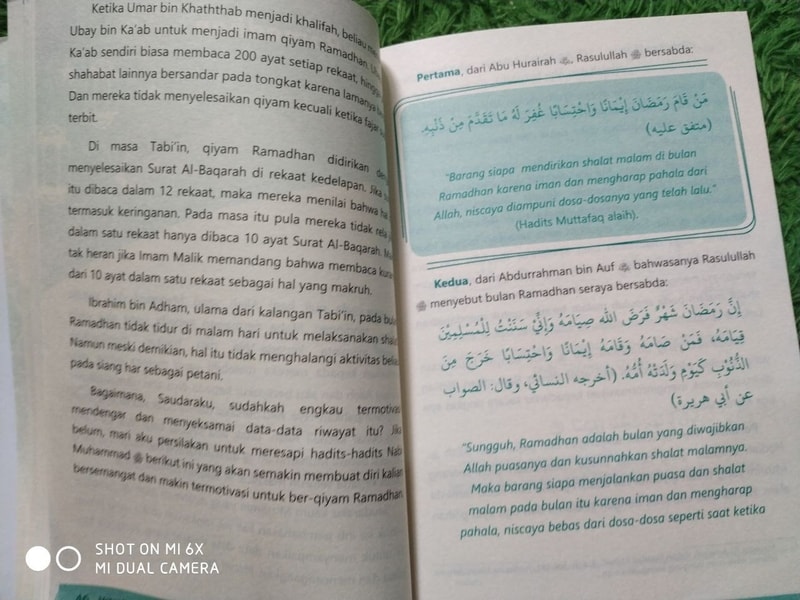 Ketika Umar bin Khaththab menjadi khalifah, beliau
Ubay bin Ka'ab untuk menjadi imam qiyam Ramadhan.
Ka'ab sendiri biasa membaca 200 ayat setiap rekaat,
shahabat lainnya bersandar pada tongkat karena lamanya
Dan mereka tidak menyelesaikan qiyam kecuali ketika fajar
terbit.
Di masa Tabi'in, qiyam Ramadhan didirikan
menyelesaikan Surat Al-Baqarah di rekaat kedelapan. Jika
itu dibaca dalam 12 rekaat, maka mereka menilai bahwa
termasuk keringanan. Pada masa itu pula mereka tidak
dalam satu rekaat hanya dibaca 10 ayat Surat Al-Baqarah.
tak heran jika Imam Malik memandang bahwa membaca
dari 10 ayat dalam satu rekaat sebagai hal yang makruh.
Ibrahim bin Adham, ulama dari kalangan Tabi'in, pada
Ramadhan tidak tidur di malam hari untuk melaksanakan
Namun meski demikian, hal itu tidak menghalangi aktivitas
pada siang har sebagai petani.
Bagaimana, Saudaraku, sudahkah engkau
mendengar dan menyeksamai data-data riwayat itu? Jika
belum, mari aku persilakan untuk meresapi hadits-hadits
Muhammad ﷺ berikut ini yang akan semakin membuat diri kalian
bersemangat dan makin termotivasi untuk ber-qiyam Ramadhan
Pertama, dari Abu Hurairah, Rasulullah ﷺ bersabda:
مَنْ قَامَ رَمَضَانَ إِيْمَانًا وَاحْتِسَابًا غُفِرَ لَهُ مَا تَقَدَّمَ مِنْ ذَنْبِهِ.
(متفق عليه)
"Barang siapa mendirikan shalat malam di bulan
Ramadhan karena iman dan mengharap pahala dari
Allah, niscaya diampuni dosa-dosanya yang telah lalu."
(Hadits Muttafaq alaih).
Kedua, dari Abdurrahman bin Auf bahwasanya Rasulullah
ﷺ menyebut bulan Ramadhan seraya bersabda:
إِنَّ رَمَضَانَ شَهْرٌ فَرَضَ الله صِيَامَهُ وَإِنِّيْ سَنَنْتُ لِلْمُسْلِمِيْنَ
قِيَامَهُ، فَمَنْ صَامَهُ وَقَامَهُ إِيْمَانًا وَاحْتِسَابًا خَرَجَ مِنَ
الذُّنُوْبِ كَيَوْمِ وَلَدَتْهُ أُمُّهُ. (أخرجه النسائي، وقال: الصواب
عن أبي هريرة)
"Sungguh, Ramadhan adalah bulan yang diwajibkan
Allah puasanya dan kusunnahkan shalat malamnya.
Maka barang siapa menjalankan puasa dan shalat
malam pada bulan itu karena iman dan mengharap
pahala, niscaya bebas dari dosa-dosa seperti saat ketika
SHOT ON MI 6X
MI DUAL CAMERA